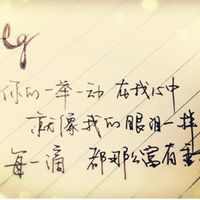 lg
你的一举一动 在我心中
就像我的眼泪一样
每一滴 都那么富有重